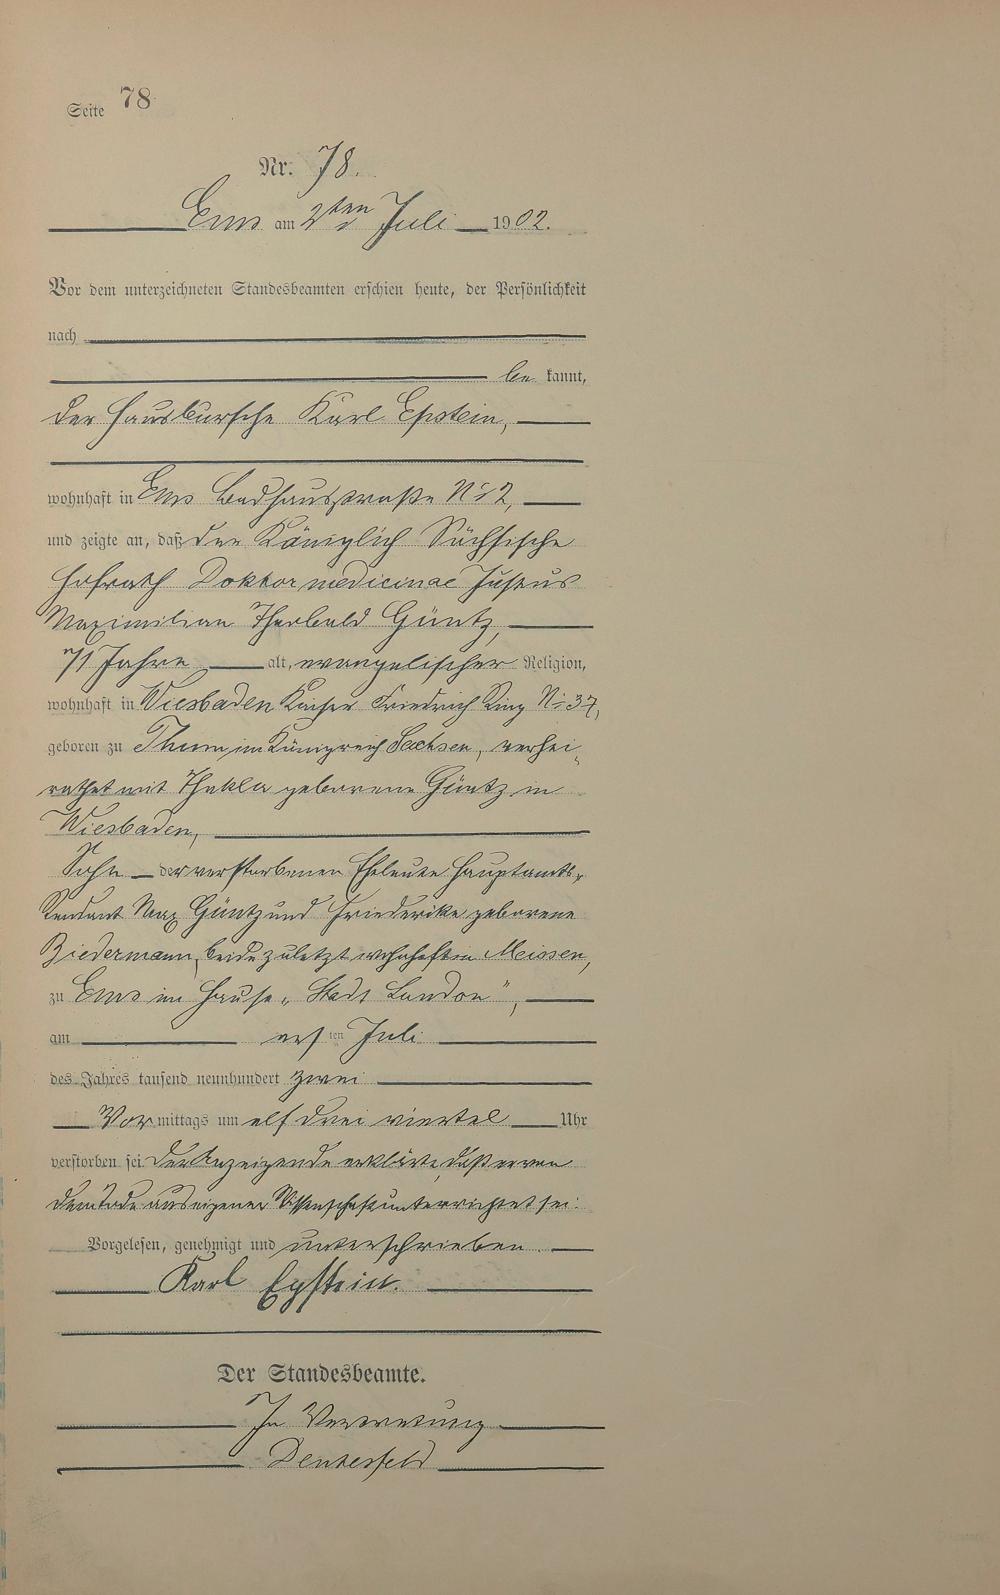 Seite 78
Nr. 78.
Ems am 2ten Juli 1902.
Vor dem unterzeichneten Standesbeamten erschien heute, der Persönlichkeit
nach
be kannt,
der Hausbursche Karl Epstein,
wohnhaft in Ems Badhausstraße No 2,
und zeigte an, daß der Königlich Sächsische
Hofrath Doktor medicinae Justus
Maximilian Theobald Güntz,
71 Jahre alt, evangelischer Religion,
wohnhaft in Wiesbaden Kaiser Friedrich Ring No 37,
geboren zu Thum im Königreich Sachsen, verhei-
rathet mit Thekla geborene Güntz in
Wiesbaden,
Sohn der verstorbenen Eheleute Hauptamts-
Rendant Max Güntz und Friederike geborene
Biedermann, beide zuletzt wohnhaft in Meissen,
zu Ems im Hause „Stadt London",
am ersten Juli
des Jahres tausend neunhundert zwei
Vormittags um elf drei viertel Uhr
verstorben sei. Der Anzeigende erklärte, daß er von
dem Tode aus eigener Wissenschaft unterrichtet sei.
Vorgelesen, genehmigt und unterschrieben
Karl Epstein.
Der Standesbeamte.
In Vertretung